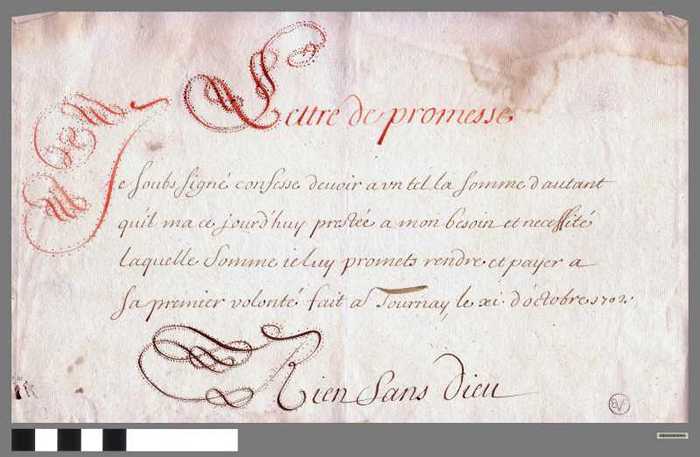 Lettre de promesse
Je soubs signé confesse deuoir a vn tel la somme d'autant
qu'il ma ce jourd'huy prestée a mon besoin et necessité
laquelle somme ie luy promets rendre et payer a
sa premier volonté fait a Tournay le xi d'octobre 1702.
Rien sans dieu